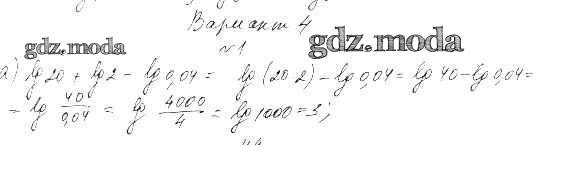 Вариант 4
gdz.moda
№1
gdz.moda
а) lg 20 + lg 2 - lg 0,04 = lg (20 2) - lg 0,04 = lg 40 - lg 0,04 =
= lg 40/0,04 = lg 4000/4 = lg 1000 = 3;